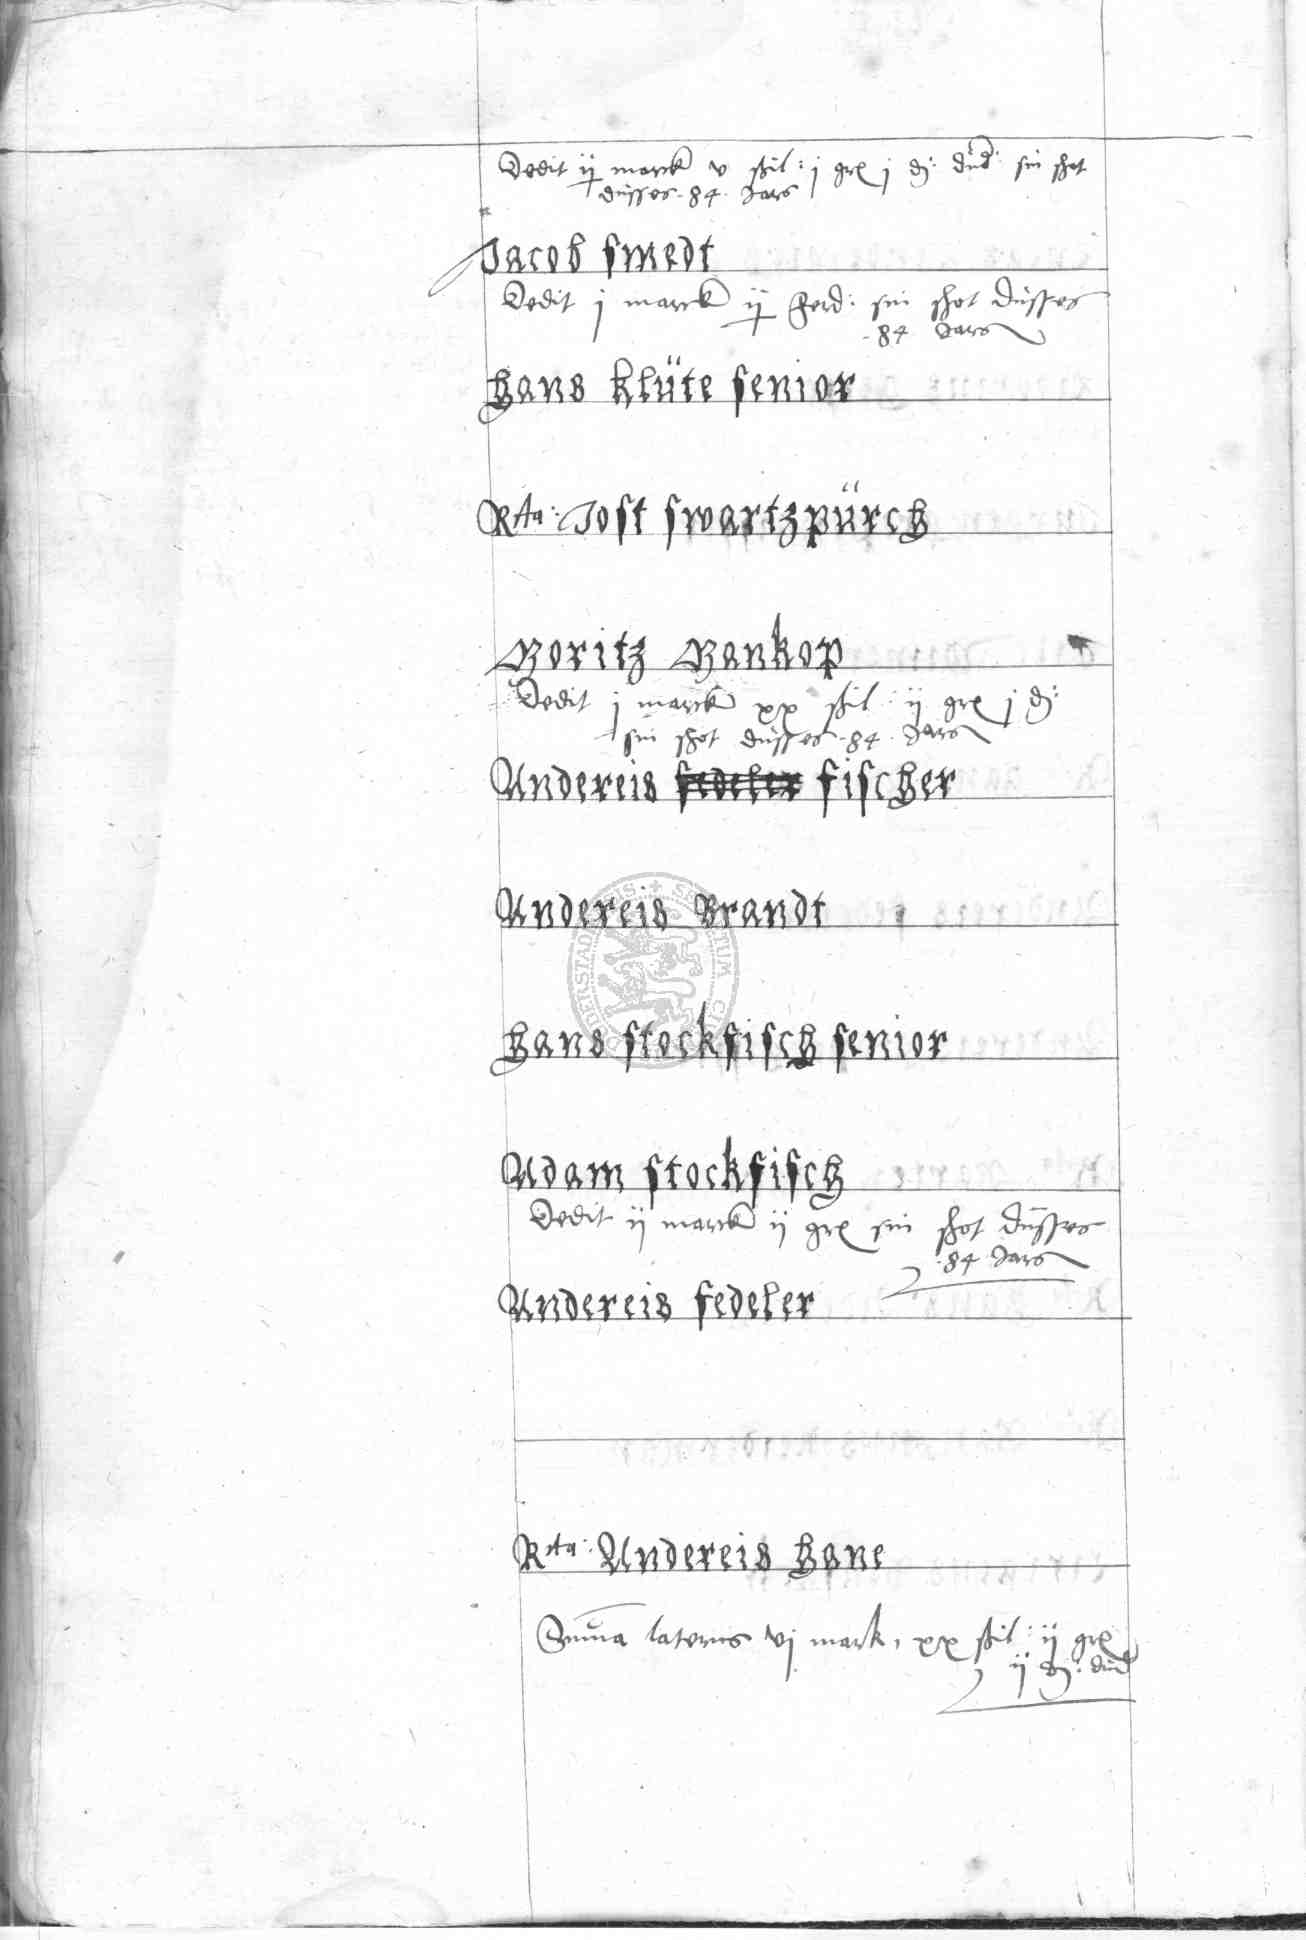 Dedit ij marck v ßil: j gr j d: düd: sin shot
düsses 84 Jars
Jacob smedt
Dedit j marck ij ferd: sin shot düsses
84 Jars
Hans klüte senior
Rta: Jost swartzpürch
Moritz Mankop
Dedit j marck xx ßil: ij gr j d:
sin shot düsses 84 Jars
Andereis fedeler fischer
Andereis Brandt
Hans stockfisch senior
Adam stockfisch
Dedit ij marck ij gr sin shot düsses
84 Jars
Andereis fedeler
Rta: Andereis Hane
Summa lateris vj mark, xx ßil: ij gr
ij d: düd